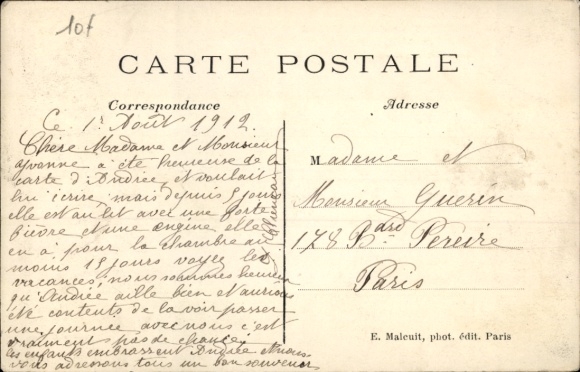 10f
CARTE POSTALE
Correspondance
Adresse
Ce 1r Août 1912.
Chère Madame et Monsieur
Yvonne a été heureuse de la
carte d'Andrée et voulait
lui écrire, mais depuis 5 jours
elle est au lit avec une forte
fièvre et une angine, elle
en a pour la chambre au
moins 15 jours voyez les
vacances, nous sommes heureux
qu'Andrée aille bien et aurions
été contents de la voir passer
une journée avec nous c'est
vraiment pas de chance,
les enfants embrassent Andrée et nous
vous adressons tous un bon souvenir
Madame et
Monsieur Guerin
178 Bard Pereire
Paris
E. Malcuit, phot. édit. Paris